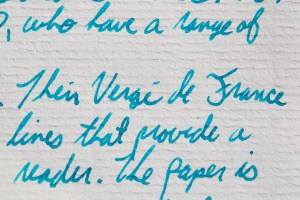 , who have a range of
. Their Vergé de France
lines that provide a
reader. The paper is